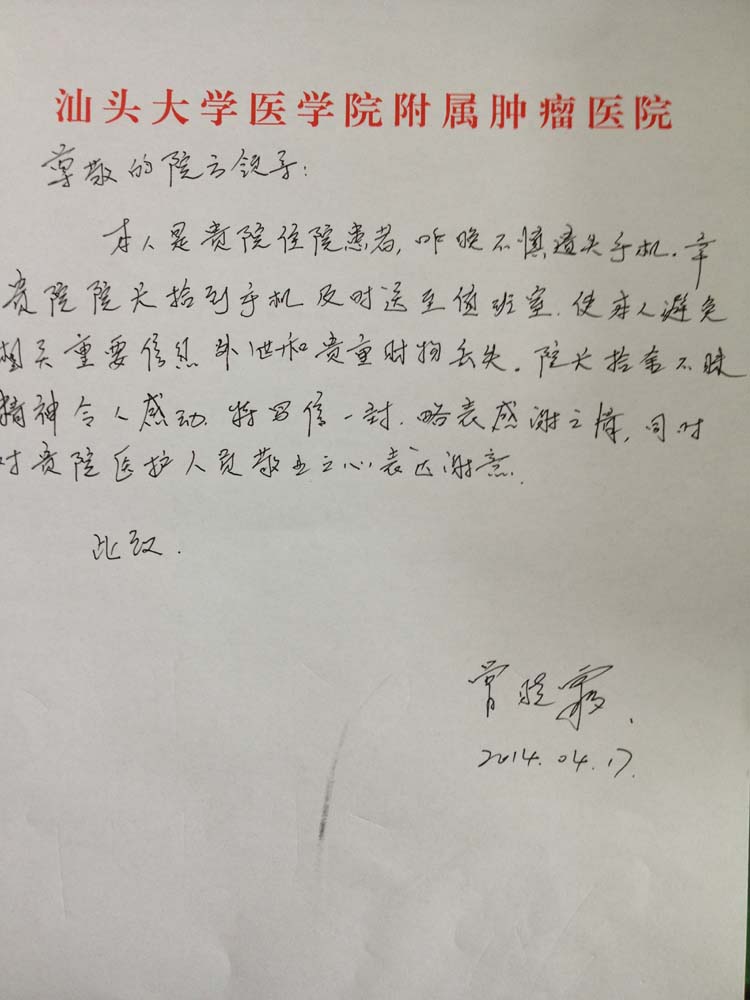 汕头大学医学院附属肿瘤医院
尊敬的院方领导：
本人是贵院住院患者，昨晚不慎遗失手机.幸
贵院院长拾到手机及时送至值班室.使本人避免
相关重要信息外泄和贵重财物丢失.院长拾金不昧
精神令人感动.特写信一封.略表感谢之情，同时
对贵院医护人员敬业之心表达谢意.
此致.
2014.04.17.